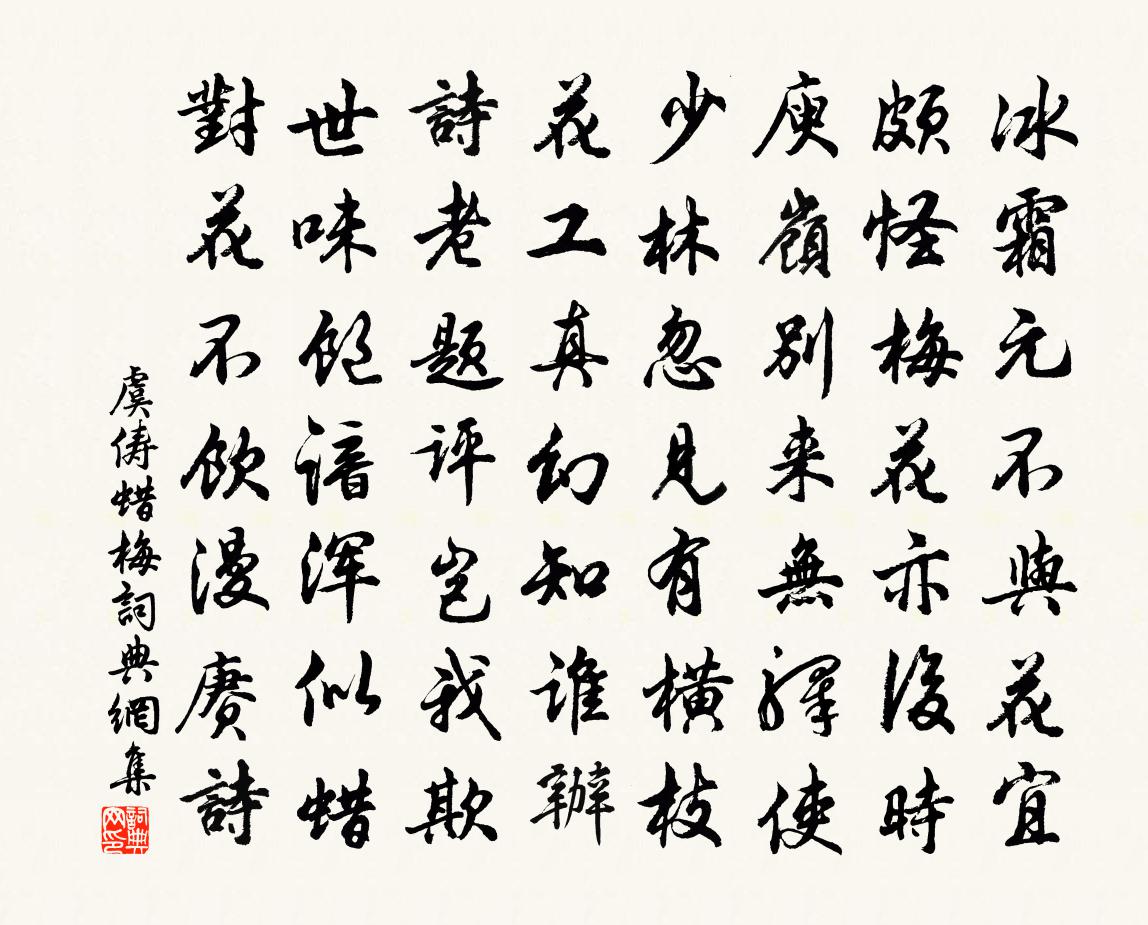 冰霜元不與花宜
頗怪梅花亦後時
庾嶺別来無驛使
少林忽見有橫枝
花工真幻知誰辦
詩老题評豈我欺
世味飽諳渾似蜡
對花不飲漫赓詩
虞儔蜡梅詞典網集
詞典网印